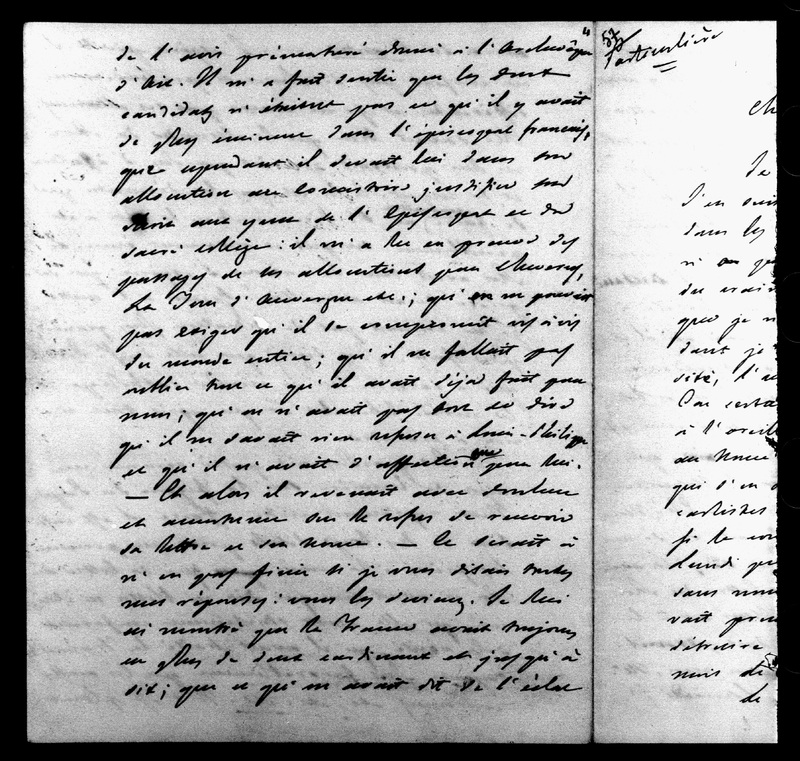 de l'avis prématuré donné à l'Archevêque
d'Aix. Il m'a fait sentir que les deux
candidats n'étaient pas ce qu'il y avait
de plus éminent dans l'épiscopat français,
que cependant il devait lui dans son
allocution au Consistoire justifier son
choix aux yeux de l'Episcopat et du
sacré collège : il m'a lu en preuve des
passages de ses allocutions pour Cheverus,
La Tour d'Auvergne etc.; qu'on ne pouvait
pas exiger qu'il se compromît vis à vis
du monde entier; qu'il ne fallait pas
oublier tout ce qu'il avait déjà fait pour
nous; qu'on n'avait pas tort de dire
qu'il ne savait rien refuser à Louis-Philippe
et qu'il n'avait d'affection que pour lui.
— Et alors il revenait avec douleur
et amertume sur le refus de recevoir
sa lettre et son nonce. — Ce serait à
n'en pas finir si je vous disais toutes
mes réponses : vous les devinez. Je lui
ai montré que la France avait toujours
eu plus de deux cardinaux et jusqu'à
dix; que ce qu'on avait dit de l'éclat
57
Particulière
Je
J'en suis
dans les
du
que je
dont je
Car
à l'oreille
au Nonce
qui s'en
carlistes
si la
Lundi
sans
détruire
mais de
de